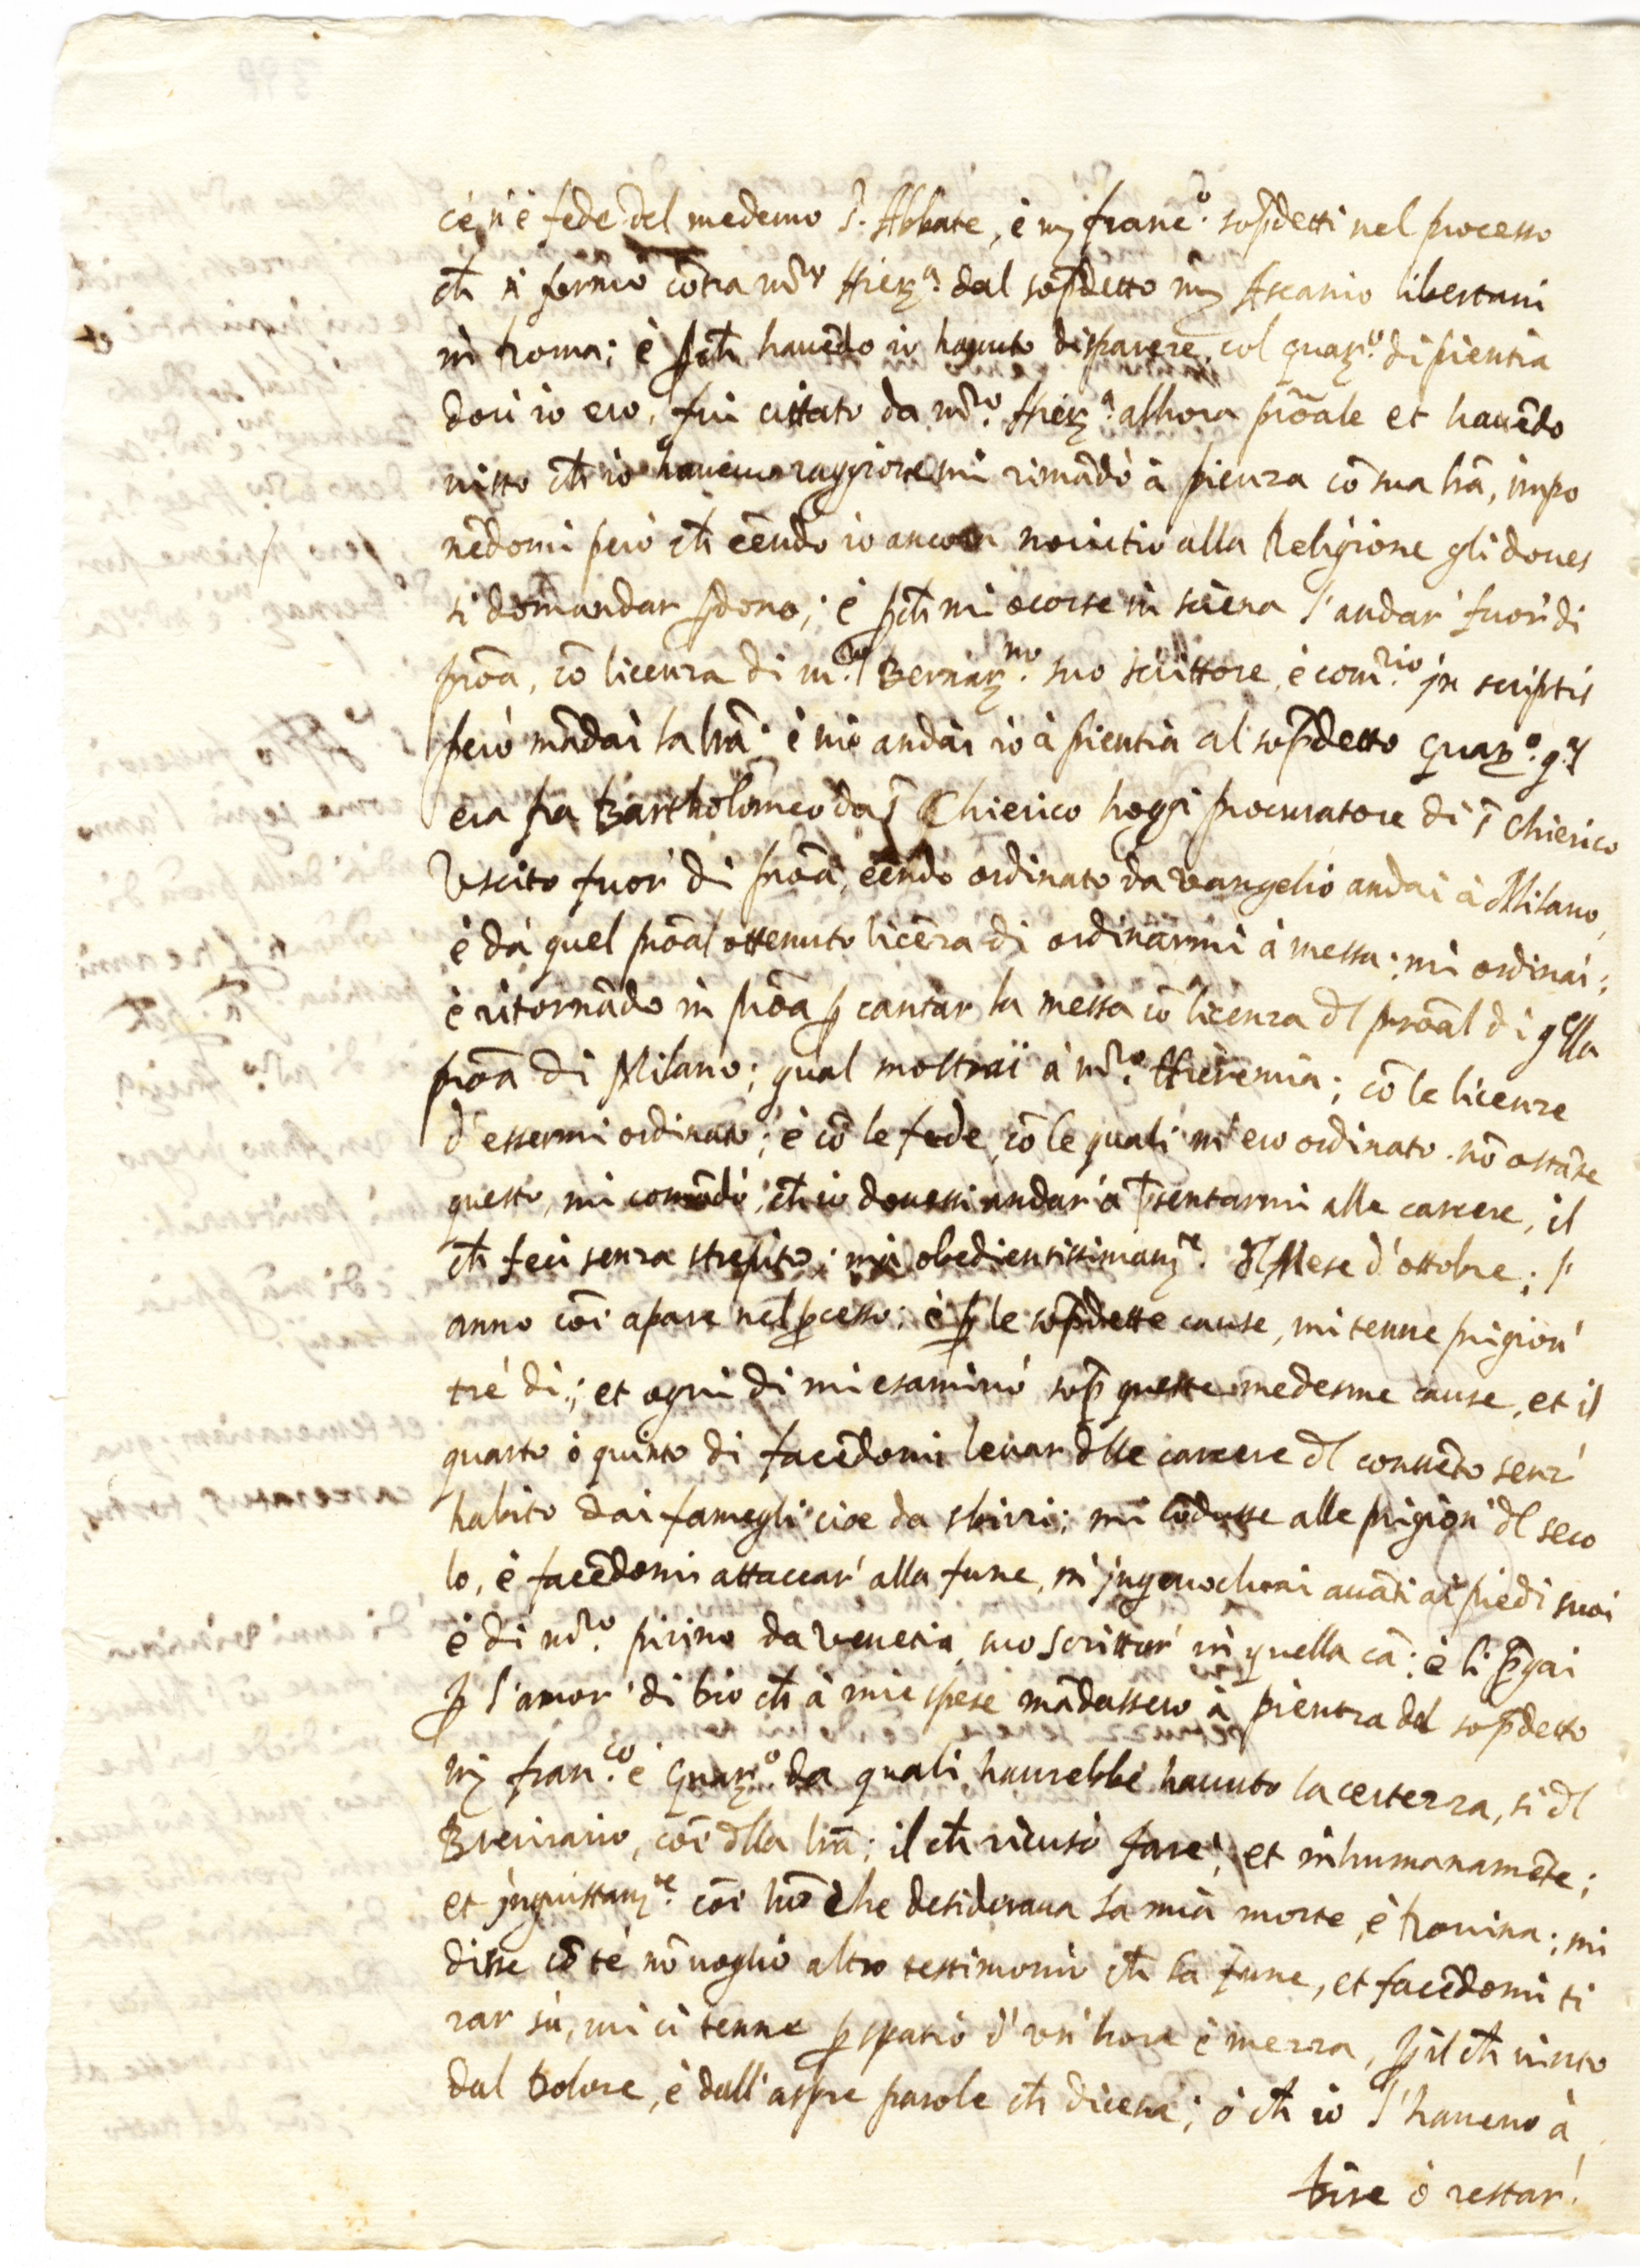 ce n'è fede del medemo S. Abbate, è m̃ Franc.º sop̃detti nel processo
ch̃ si formò cõtra m̃ro Hier.ª dal sop̃detto m̃ Ascanio libertani
in Roma; è p̱ch̃ havẽdo io havuto disparere col guar.º di pientia
dovi io ero, fui cittato da m̃ro. Hier.ª alhora prõale et havẽdo
visto ch̃ io havevo raggione mi rimãdò à pienza cõ sua lrã, impo
nẽdomi però ch̃ eẽndo io ancora novitio alla Religione gli doves
si domandar p̱dono; è p̱ch̃ mi ocorse in siena l'andar' fuor' di
prõa, cõ licenza di m.ro Bernar.no suo scrittore, è com.rio in scriptis
però mãdai la lrã: è nõ andai io à pientia al sop̃detto Guar.º q.l
era fra Bartholomeo da S̃ Chierico hoggi procuratore di S̃ Chierico
Uscito fuor' di prõa, eẽndo ordinato da vangelio andai à Milano,
è da quel prõal ottenuto licẽza di ordinarmi à messa; mi ordinai;
è ritornãdo in prõa p̱ cantar la messa cõ licenza dl prõal di q̃lla
prõa di Milano; qual mostrai à m̃ro. Hieremia; cõ le licenze
d'essermi ordinato; è cõ le fede, cõ le quali m'ero ordinato. nõ ostãte
questo, mi comãdò, ch̃ io dovessi andar' à p̃sentarmi alle carcere, il
ch̃ feci senza strepito; mà obedientissimam.te dl Mese d'ottobre; l'
anno cõi apare nel p̱cesso: è p̱ le sop̃dette cause, mi tenne prigion'
tré di; et ogni di mi esaminò sop̃ queste medesme cause, et il
quarto ò quinto di facẽdomi levar dlle carcere dl convẽto senz'
habito dai famegli cioe da sbirri; mi cõdusse alle prigion' dl seco
lo, è facẽdomi attaccar' alla fune, m'ingenochiai avãti ai piedi suoi
è di m̃ro. pirino da Venetia, suo scrittor' in quella cã: è li p̃gai
p̱ l'amor' di Dio ch̃ à mie spese mãdassero à pienza dal sop̃detto
m̃ fran.co è Guar.º da quali haurebbe havuto la certezza, si dl
Breviario, cõi dlla lrã; il ch̃ ricusò fare; et inhumanamẽte;
et ingiustam.te cõi huõ che desiderava la mia morte, è rovina; mi
disse cõ te nõ voglio altro testimonio ch̃ la fune, et facẽdomi ti
rar sù, mi ci tenne p̱ spatio d'un' hora è mezza, p̱ il ch̃ vinto
dal Dolore, è dall'aspre parole ch̃ diceva; ò ch̃ io l'havevo à
dire ò restar'